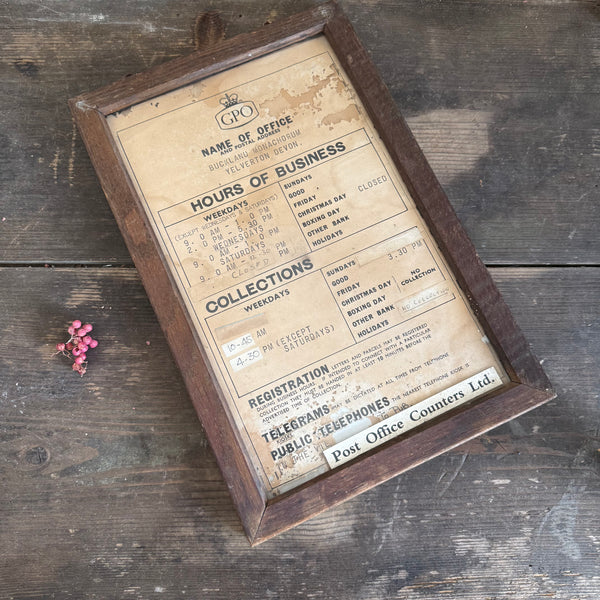 GPO
NAME OF OFFICE
AND POSTAL ADDRESS
BUCKLAND MONACHORUM
YELVERTON DEVON.
HOURS OF BUSINESS
WEEKDAYS
(EXCEPT WEDNESDAYS & SATURDAYS)
9. 0 AM - 1. 0 PM
2. 0 PM - 5.30 PM
WEDNESDAYS
9. 0 AM - 1. 0 PM
SATURDAYS
9. 0 AM
CLOSED
SUNDAYS
GOOD
FRIDAY
CHRISTMAS DAY
BOXING DAY
OTHER BANK
HOLIDAYS
CLOSED
COLLECTIONS
WEEKDAYS
10-45 AM
4-30 PM (EXCEPT
SATURDAYS)
SUNDAYS
GOOD
FRIDAY
CHRISTMAS DAY
BOXING DAY
OTHER BANK
HOLIDAYS
3.30 PM
NO
COLLECTION
NO COLLECTION
REGISTRATION LETTERS AND PARCELS MAY BE REGISTERED
DURING BUSINESS HOURS BUT IF INTENDED TO CONNECT WITH A PARTICULAR
COLLECTION THEY MUST BE HANDED IN AT LEAST 10 MINUTES BEFORE THE
ADVERTISED TIME OF COLLECTION.
TELEGRAMS MAY BE DICTATED AT ALL TIMES FROM TELEPHONE
PUBLIC TELEPHONES THE NEAREST TELEPHONE KIOSK IS
Post Office Counters Ltd.